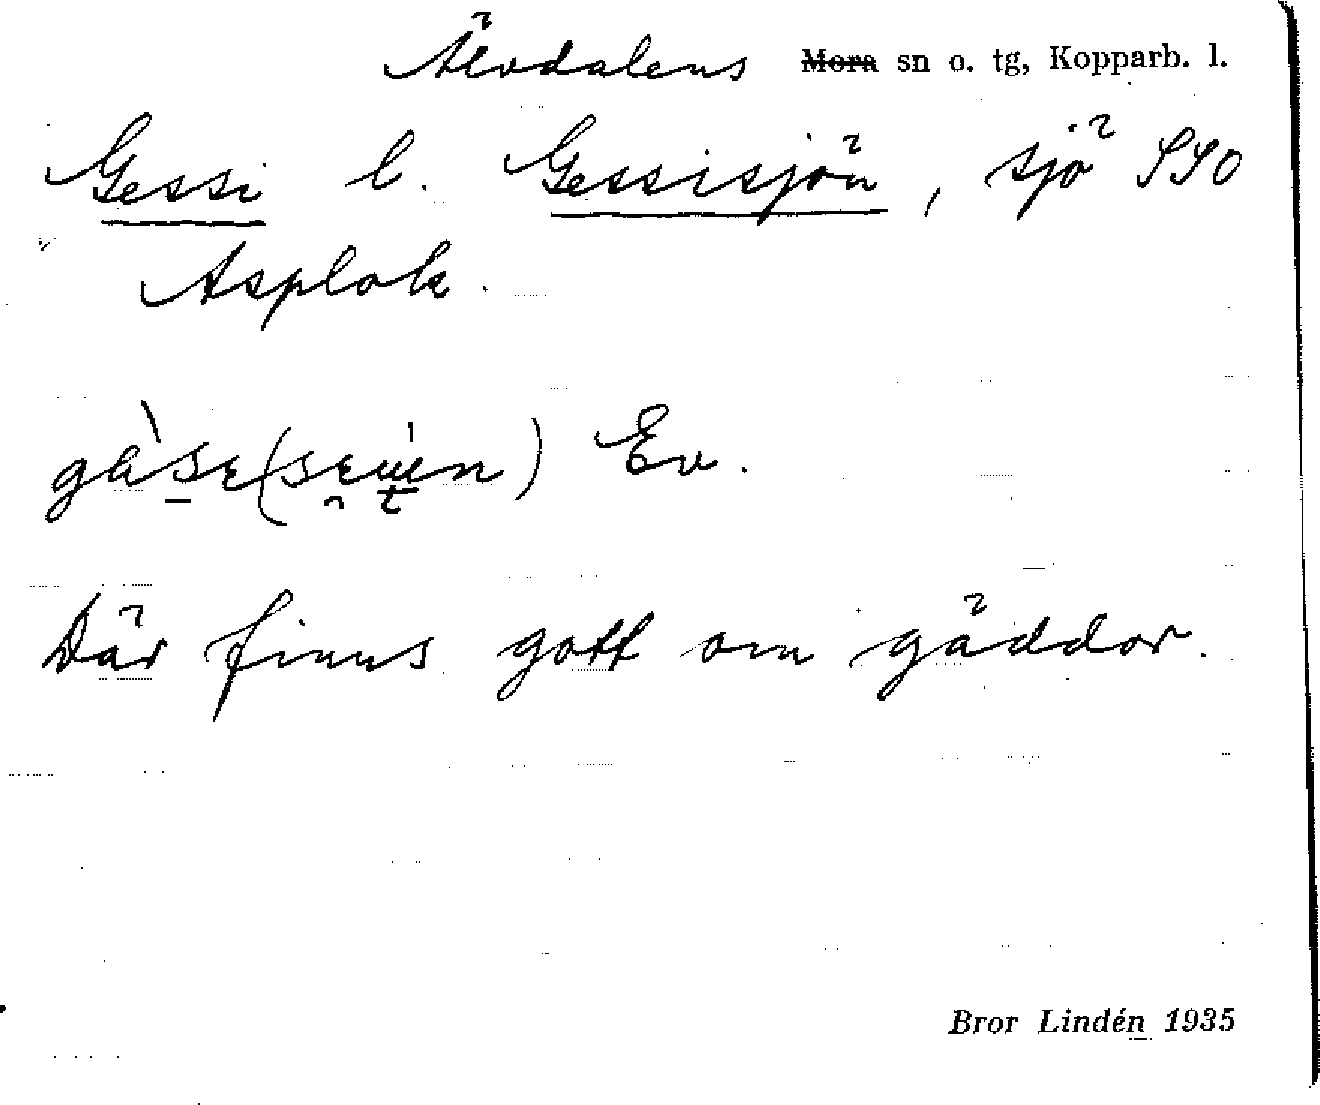 Älvdalens Mora sn o. tg, Kopparb. l.
Gessi l. Gessisjön, sjö SSO
Asplok.
Ev.
Där finns gott om gäddor.
Bror Lindén 1935